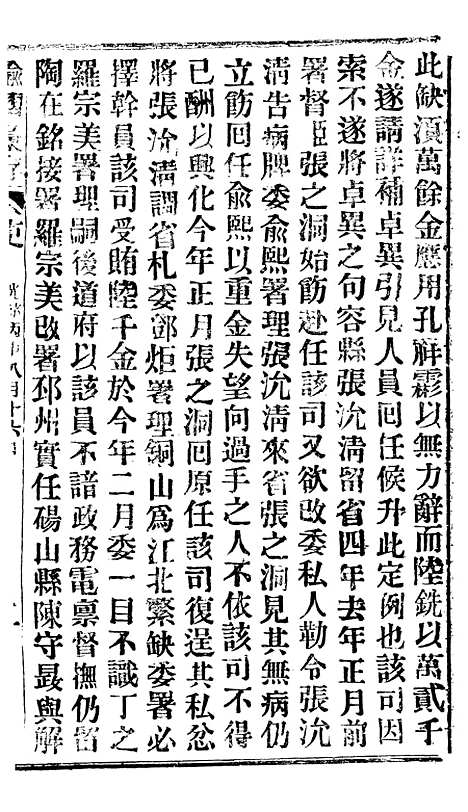 此缺須萬餘金應用孔祥霖以無力辭而陸銑以萬貳千
金遂請詳補卓異引見人員囘任候升此定例也該司因
索不遂將卓異之句容縣張沇淸留省四年去年正月前
署督臣張之洞始飭赴任該司又欲改委私人勒令張沇
淸告病牌委俞熙署理張沇淸來省張之洞見其無病仍
立飭囘任俞熙以重金失望向過手之人不依該司不得
已酬以興化今年正月張之洞囘原任該司復逞其私忿
將張沇淸調省札委鄧炬署理銅山爲江北繁缺委署必
擇幹員該司受賄陸千金於今年二月委一目不識丁之
羅宗美署理嗣後道府以該員不諳政務電稟督憮仍留
陶在銘接署羅宗美改署邳州實任碭山縣陳守晸與解
諭摺彙存
八月十六日